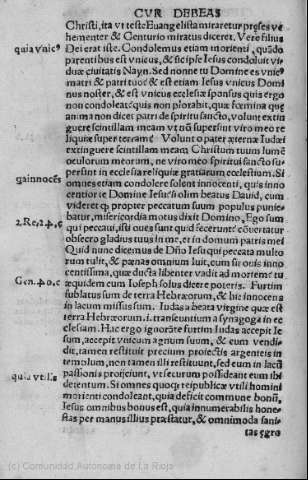 CVR DEBEAS
Christi, ita vt teste Euangelista miraretur preses ve
hementer & Centurio miratus diceret. Vere filius
quia vnicꝰ Dei erat iste. Condolemus etiam morienti, quādo
parentibus est vnicus, & sic ipse Iesus condoluit vi-
duæ ciuitatis Nayn. Sed nonne tu Domine es vnicꝰ
matri & patri tuo? & est etiam Iesus vnicus Domi
nus noster, & est vnicus ecclesiæ sponsus quis ergo
non condoleat? quis non plorabit, quæ fœmina quę
anima non dicet patri de spiritu sancto, volunt extin
guere scintillam meam vt nō supersint viro meo re
liquiæ super terram? Volunt o pater æterne Iudæi
extinguere scintillam meam Christum tuum lumē
oculorum meorum, ne viro meo spiritui sancto su-
persint in ecclesia reliquiæ gratiarum ecclesium. Si
q̃a innocēs omnes etiam condolere solent innocenti, quis inno
centior te Domine Iesu? si olim beatus Dauid, cum
videret q̃ propter peccatum suum populus punie-
batur, misericordia motus dixit Domino, Ego sum
2. Re. 24. c qui peccaui, isti oues sunt quid fecerunt? cōuertatur
obsecro gladius tuus in me, et in domum patris mei
Quid nunc dicemus de Dño Iesu qui peccata multo
rum tulit, & pœnas omnium luit, cum sit ouis inno
centissima, quæ ducta libenter vadit ad mortem? tu
Gen. 40. c æquidem cum Ioseph solus dicere poteris. Furtim
sublatus sum de terra Hebræorum, & hic innocens
in lacum missus sum. Iudas a beata virgine quæ est
terra Hebræorum. i. transeuntium a synagoga in ec
clesiam. Hac ergo ignorāte furtim Iudas accepit Ie
sum, accepit vnicum agnum suum, & eum vendi-
dit, tamen restituit precium proiectis argenteis in
templum, non tamen illi restituunt, sed eum in lacū
quia vtilis passionis projiciunt, vt securum possideant eum ibi
detentum. Si omnes quoq; reipublicæ vtili homini
morienti condoleant, quia deficit commune bonū,
Iesus omnibus bonus est, quia innumerabilis hone-
stas per manus illius præstatur, & omnimoda sani-
tas ęgro
(c) Comunidad Autónoma de La Rioja